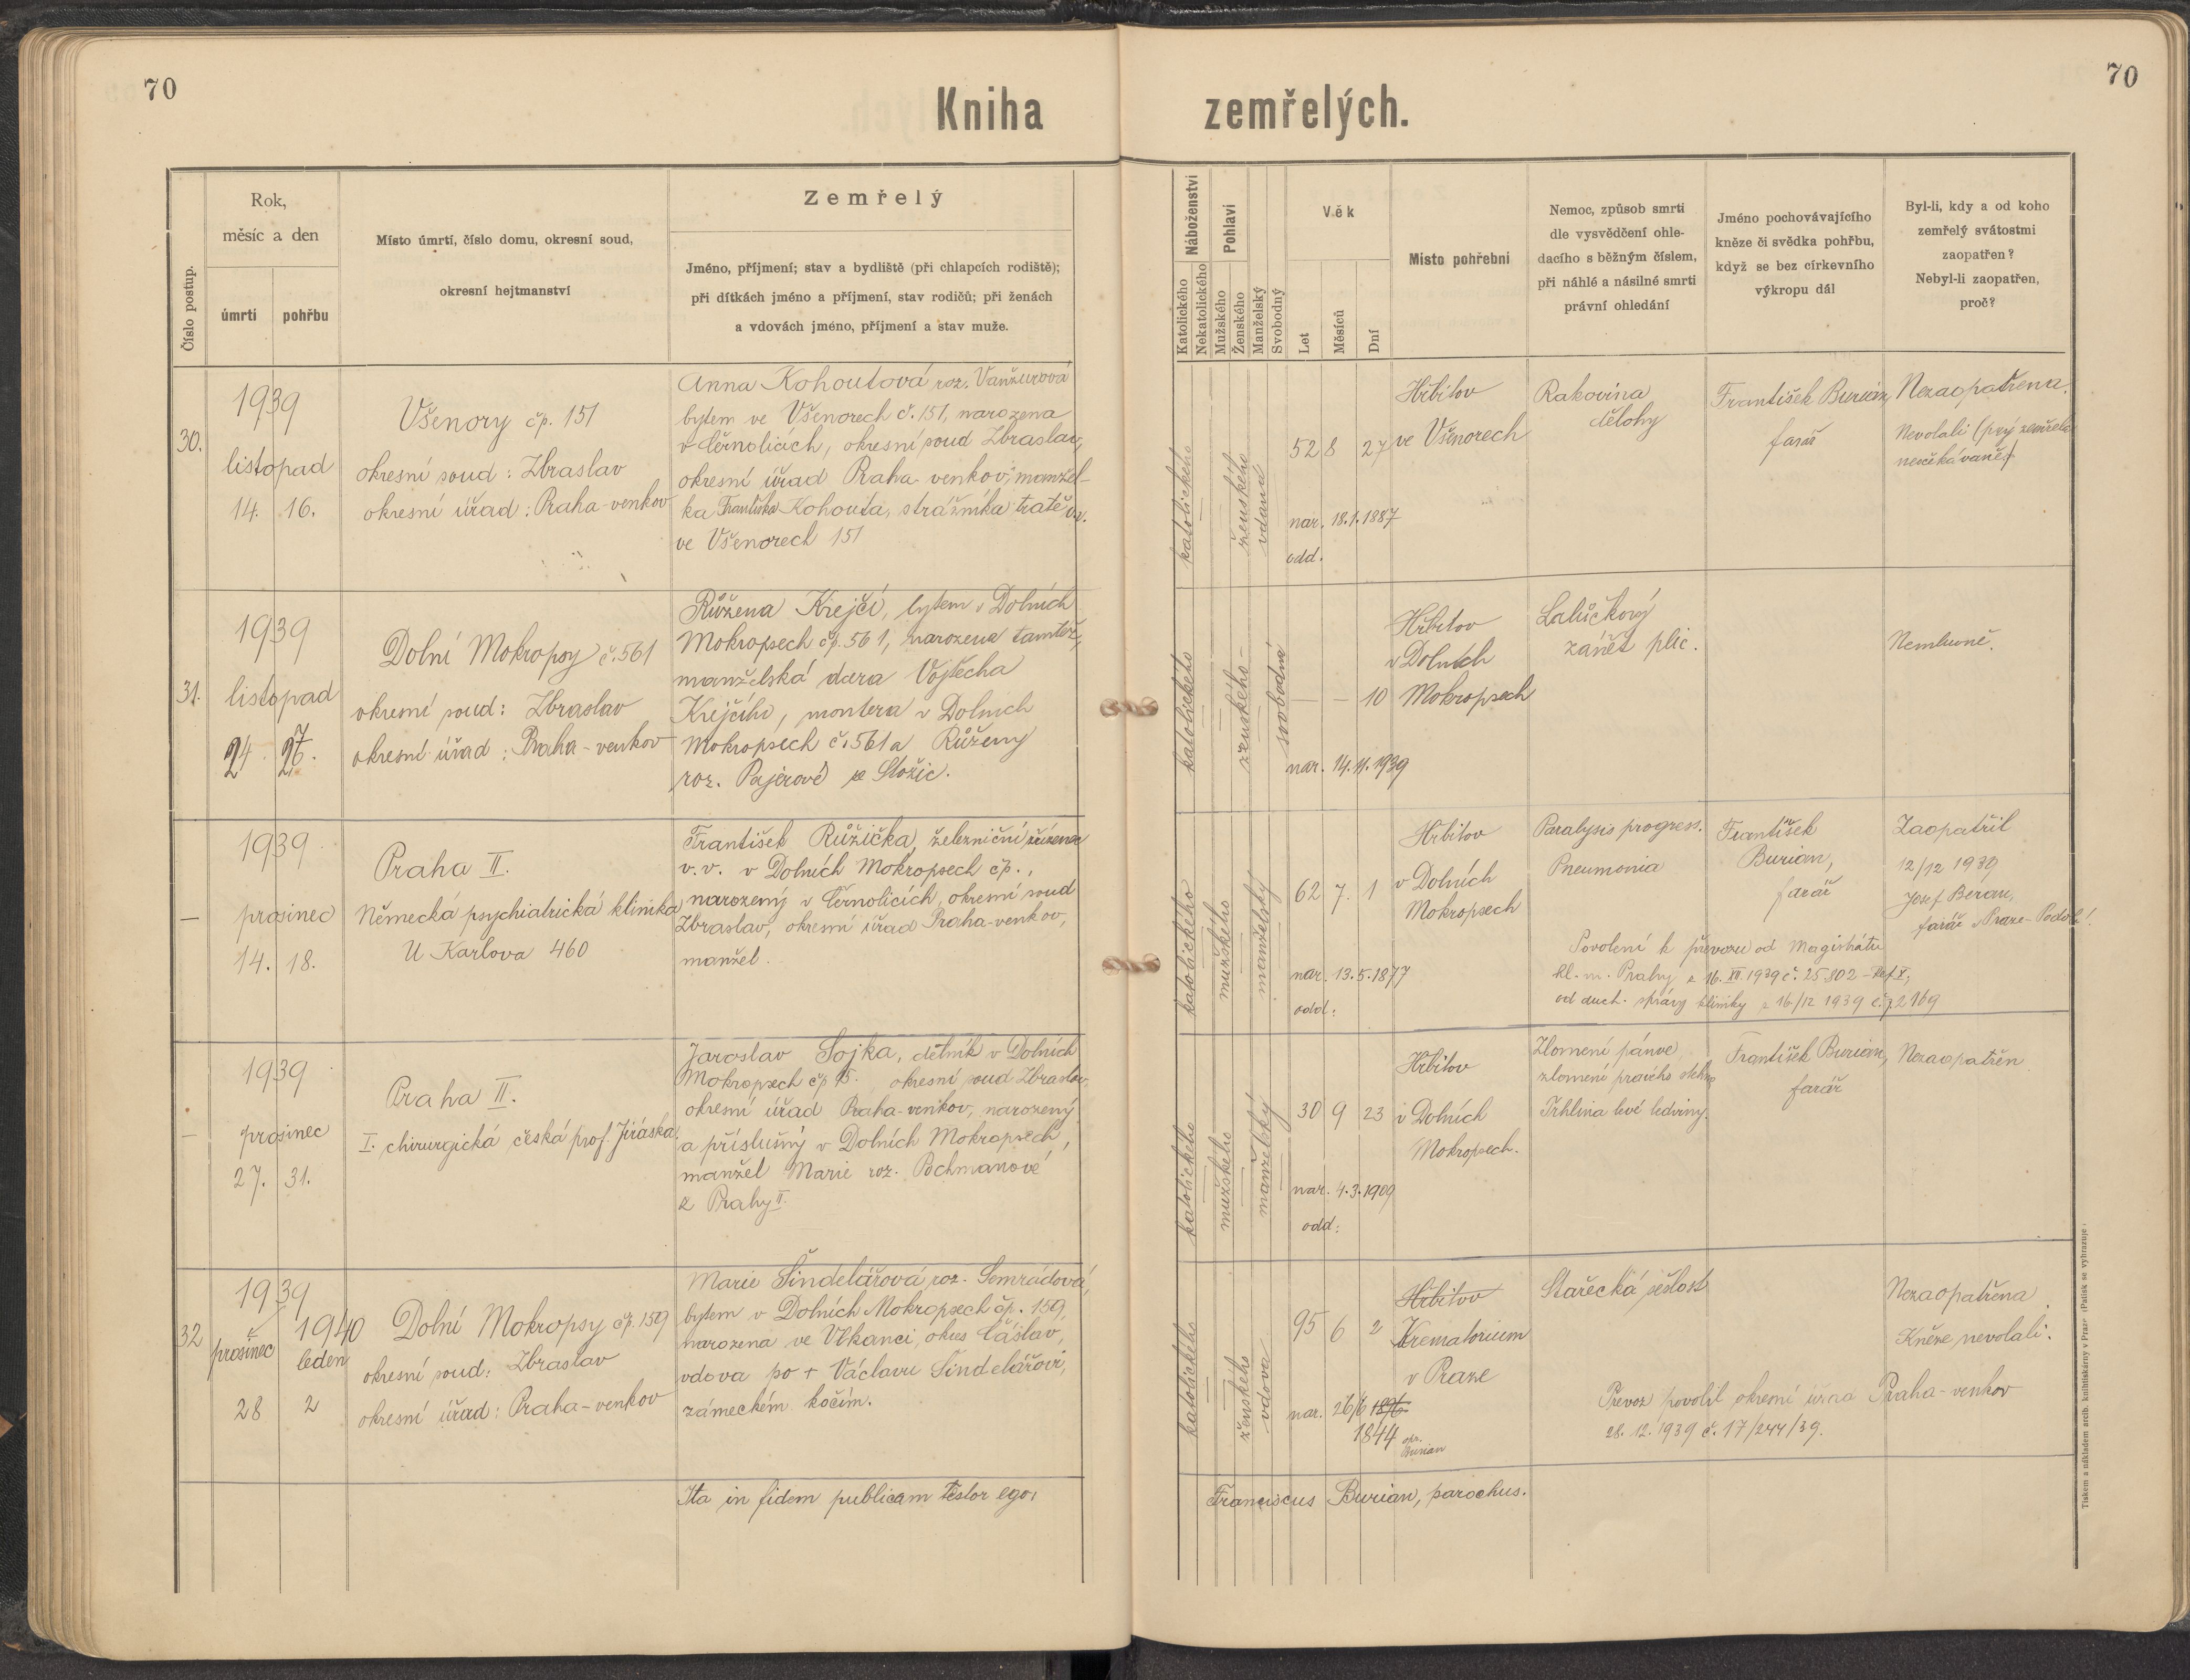 70
Kniha
zemřelých.
70
Číslo postup.
Rok,
měsíc a den
úmrtí
pohřbu
Místo úmrtí, číslo domu, okresní soud,
okresní hejtmanství
Zemřelý
Jméno, příjmení; stav a bydliště (při chlapcích rodiště);
při dítkách jméno a příjmení, stav rodičů; při ženách
a vdovách jméno, příjmení a stav muže.
Náboženství
Katolického
Nekatolického
Pohlaví
Mužského
Ženského
Manželský
Svobodný
Věk
Let
Měsíců
Dní
Místo pohřební
Nemoc, způsob smrti
dle vysvědčení ohle-
dacího s běžným číslem,
při náhlé a násilné smrti
právní ohledání
Jméno pochovávajícího
kněze či svědka pohřbu,
když se bez církevního
výkropu dál
Byl-li, kdy a od koho
zemřelý svátostmi
zaopatřen?
Nebyl-li zaopatřen,
proč?
30.
1939
listopad
14. 16.
Všenory čp. 151
okresní soud: Zbraslav
okresní úřad: Praha-venkov
Anna Kohoutová roz. Vanžurová
bytem ve Všenorech č. 151, narozena
v Černolicích, okresní soud Zbraslav,
okresní úřad Praha-venkov, manžel-
ka Františka Kohouta, strážníka tratě
ve Všenorech 151
katolického
ženského
vdaná
52 8 27
nar. 18.1.1887
odd.
Hřbitov
ve Všenorech
Rakovina
dělohy
František Burian,
farář
Nezaopatřena.
Nevolali (prý zemřela
neočekávaně)
31.
1939
listopad
24. 27.
Dolní Mokropsy č. 561
okresní soud: Zbraslav
okresní úřad: Praha-venkov
Růžena Krejčí, bytem v Dolních
Mokropsech čp. 561, narozena tamtéž,
manželská dcera Vojtěcha
Krejčího, montera v Dolních
Mokropsech č. 561 a Růženy
roz. Pajerové ze Stožic.
katolického
ženského
svobodná
— — 10
nar. 14.11.1939
Hřbitov
v Dolních
Mokropsech
Lalůčkový
zánět plic.
Nemluvně.
—
1939
prosinec
14. 18.
Praha II.
Německá psychiatrická klinika
U Karlova 460
František Růžička, železniční zřízenec
v.v. v Dolních Mokropsech čp.,
narozený v Černolicích, okresní soud
Zbraslav, okresní úřad Praha-venkov,
manžel.
katolického
mužského
manželský
62 7. 1
nar. 13.5.1877
odd:
Hřbitov
v Dolních
Mokropsech
Paralysis progress.
Pneumonia
František
Burian,
farář
Zaopatřil
12/12 1939
Josef Beran,
farář v Praze-Podolí.
Povolení k převozu od Magistrátu
hl. m. Prahy z 16. XII 1939 č. 25.802
od duch. správy kliniky z 16./12 1939
—
1939
prosinec
27. 31.
Praha II.
I. chirurgická česká prof. Jiráska.
Jaroslav Sojka, dělník v Dolních
Mokropsech čp 15., okresní soud Zbraslav,
okresní úřad Praha-venkov, narozený
a příslušný v Dolních Mokropsech,
manžel Marie roz. Pochmanové
z Prahy II.
katolického
mužského
manželský
30 9 23
nar. 4.3.1909
odd:
Hřbitov
v Dolních
Mokropsech.
Zlomení pánve,
zlomení pravého stehna
Trhlina levé ledviny.
František Burian,
farář
Nezaopatřen
32
1939
prosinec
28
1940
leden
2
Dolní Mokropsy čp. 159
okresní soud: Zbraslav
okresní úřad: Praha-venkov
Marie Šindelářová, roz. Semrádová,
bytem v Dolních Mokropsech čp. 159,
narozena ve Vlkanci, okres Čáslav,
vdova po + Václavu Šindelářovi,
zámeckém kočím.
katolického
ženského
vdova
95 6 2
nar. 26/6 1896
1844 opr.
Burian
Hřbitov
Krematorium
v Praze
Stařecká sešlost
Nezaopatřena.
Kněze nevolali.
Převoz povolil okresní úřad Praha-venkov
28. 12. 1939 č. 17/244/39.
Ita in fidem publicam testor ego:
Franciscus Burian, parochus.
Tiskem a nákladem arcib. knihtiskárny v Praze (Patisk se vyhrazuje.)